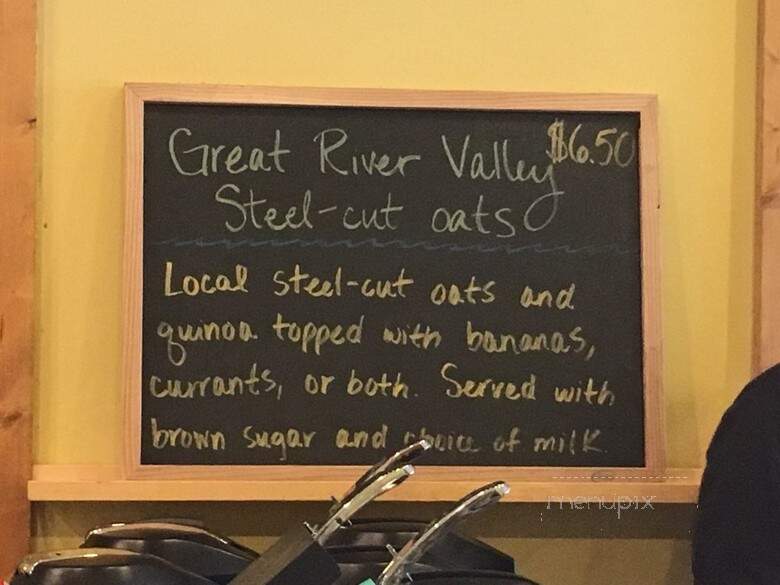 Great River Valley $6.50
Steel-cut oats
Local steel-cut oats and
quinoa topped with bananas,
currants, or both. Served with
brown sugar and choice of milk.
menupix